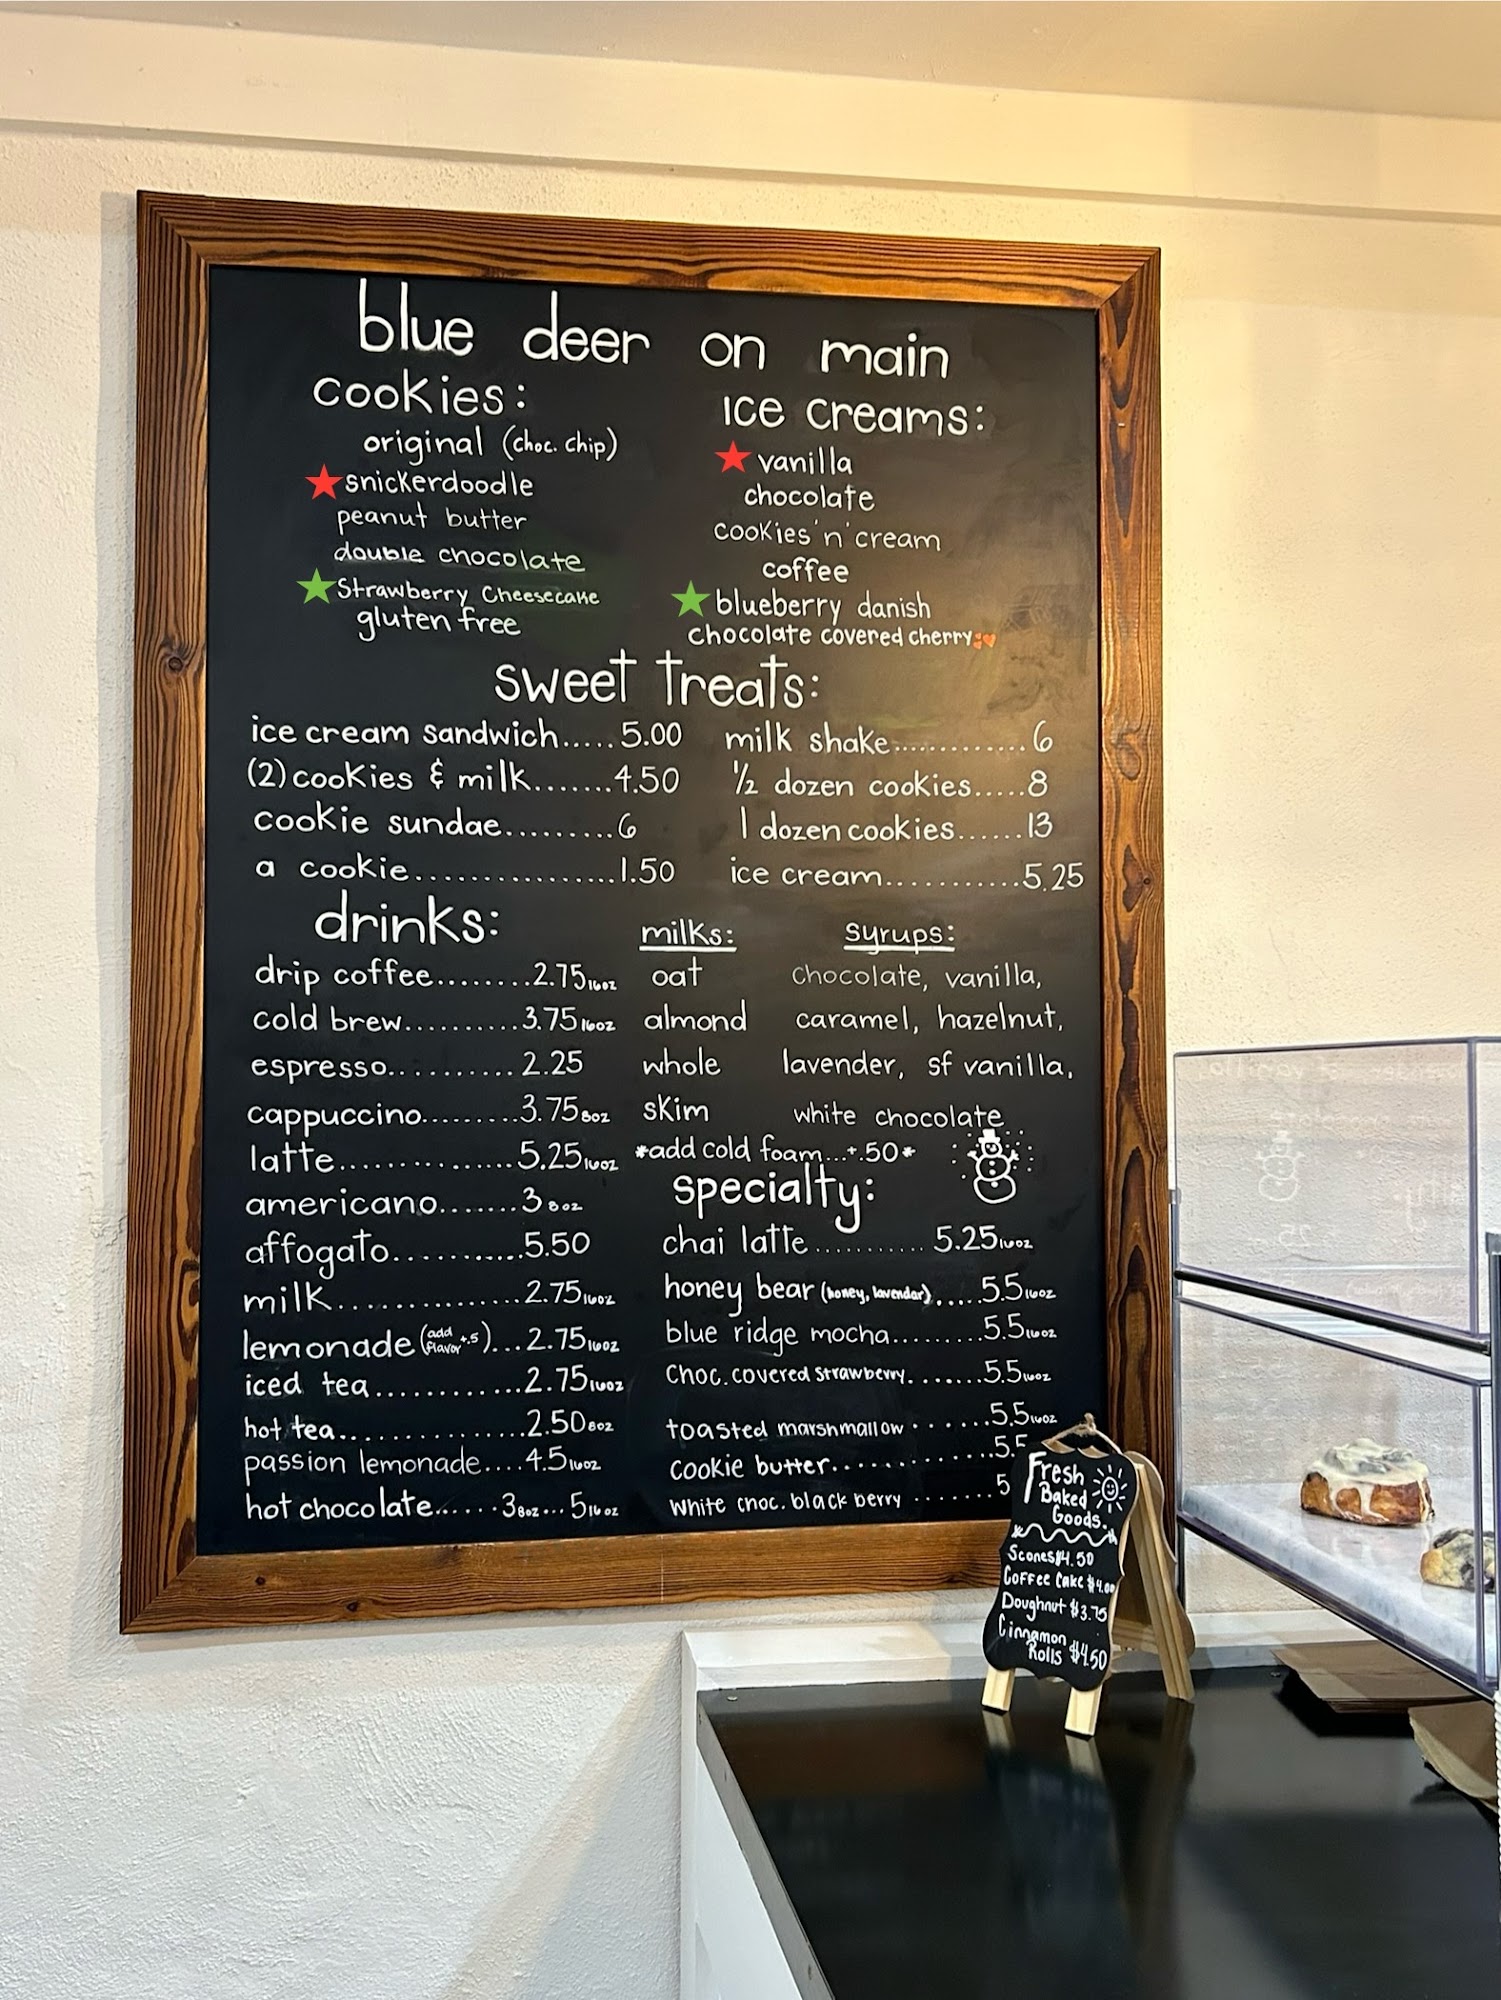 blue deer on main
cookies:
original (choc. chip)
snickerdoodle
peanut butter
double chocolate
Strawberry Cheesecake
gluten free
ice creams:
vanilla
chocolate
cookies 'n' cream
coffee
blueberry danish
chocolate covered cherry
sweet treats:
ice cream sandwich.....5.00
(2) cookies & milk.......4.50
cookie sundae.........6
a cookie................1.50
milk shake............6
1/2 dozen cookies.....8
1 dozen cookies......13
ice cream...........5.25
drinks:
drip coffee........2.75 16oz
cold brew..........3.75 16oz
espresso...........2.25
cappuccino.........3.75 8oz
latte...............5.25 16oz
americano.......3 8oz
affogato...........5.50
milk...............2.75 16oz
lemonade (add flavor +.5)...2.75 16oz
iced tea............2.75 16oz
hot tea...............2.50 8oz
passion lemonade....4.5 16oz
hot chocolate......3 8oz...5 16oz
milks:
oat
almond
whole
skim
syrups:
chocolate, vanilla,
caramel, hazelnut,
lavender, sf vanilla,
white chocolate
*add cold foam...+.50*
specialty:
chai latte........... 5.25 16oz
honey bear (honey, lavendar).....5.5 16oz
blue ridge mocha.........5.5 16oz
Choc. covered strawberry.......5.5 16oz
toasted marshmallow......5.5 16oz
cookie butter............5.5
white choc. blackberry .......5
Fresh
Baked
Goods.
Scones $4.50
Coffee Cake $4.00
Doughnut $3.75
Cinnamon
Rolls $4.50